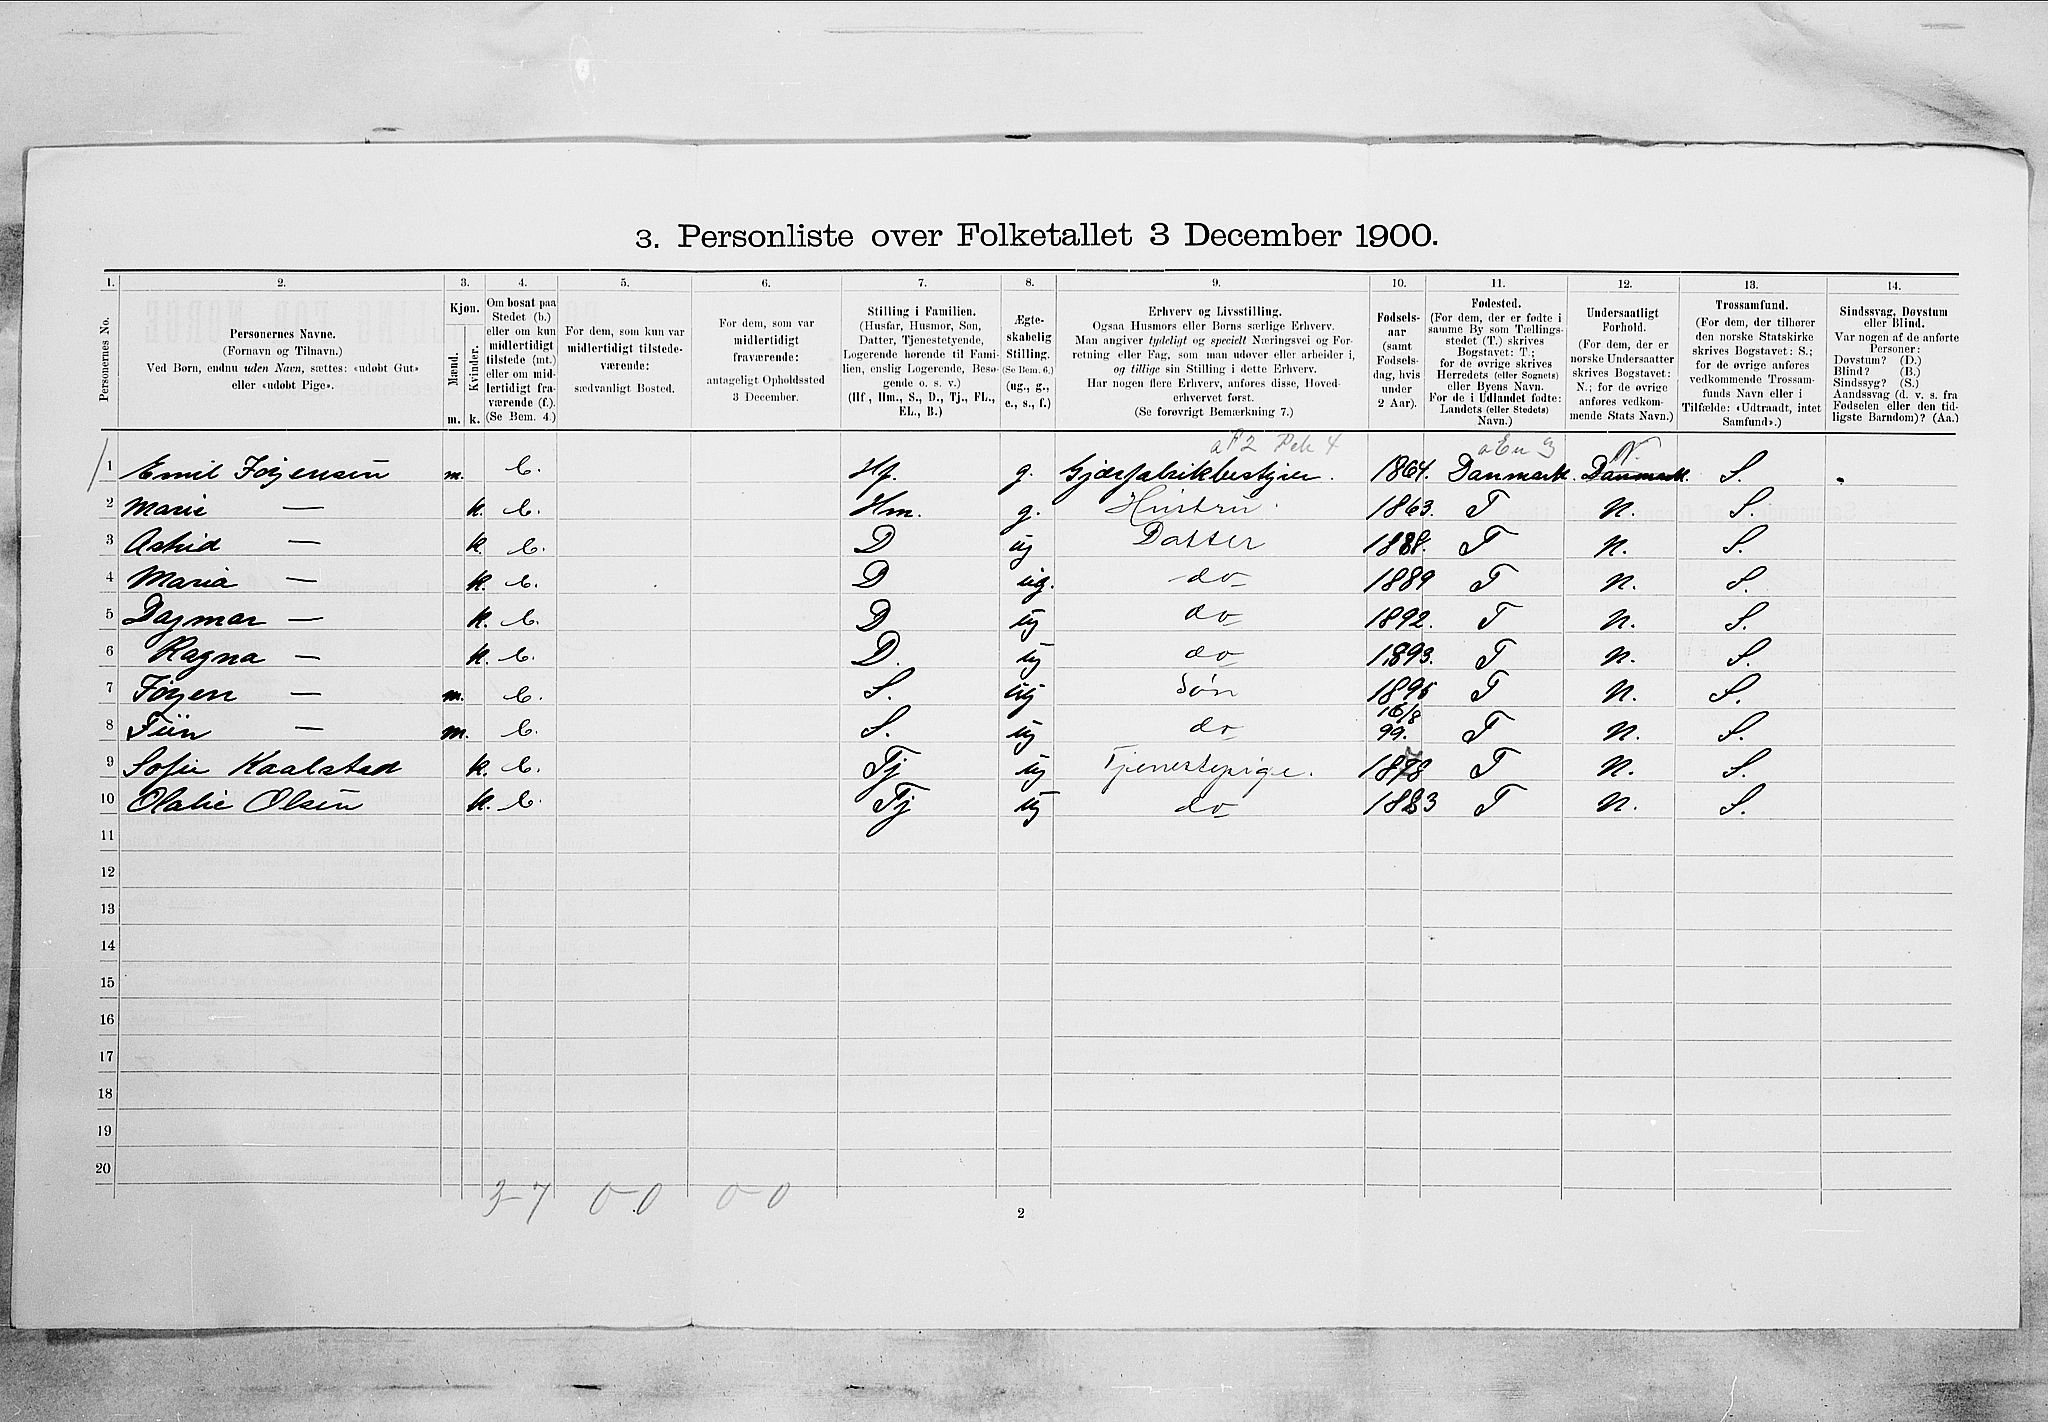 3. Personliste over Folketallet 3 December 1900.
1. 2. 3. 4. 5. 6. 7. 8. 9. 10. 11. 12. 13. 14.
Personernes No.
Personernes Navne.
(Fornavn og Tilnavn.)
Ved Børn, endnu uden Navn, sættes: «udøbt Gut»
eller «udøbt Pige».
Kjøn.
Mænd.
Kvinder.
m. k.
Om bosat paa
Stedet (b.)
eller om kun
midlertidigt
tilstede (mt.)
eller om mid-
lertidigt fra-
værende (f.).
(Se Bem. 4.)
For dem, som kun var
midlertidigt tilstede-
værende:
sædvanligt Bosted.
For dem, som var
midlertidigt
fraværende:
antageligt Opholdssted
3 December.
Stilling i Familien.
(Husfar, Husmor, Søn,
Datter, Tjenestetyende,
Logerende hørende til Fami-
lien, enslig Logerende, Besø-
gende o. s. v.)
(Hf., Hm., S., D., Tj., FL.,
EL., B.)
Ægte-
skabelig
Stilling.
(Se Bem. 6.)
(ug., g.,
e., s., f.)
Erhverv og Livsstilling.
Ogsaa Husmors eller Børns særlige Erhverv.
Man angiver tydeligt og specielt Næringsvei og For-
retning eller Fag, som man udøver eller arbeider i,
og tillige sin Stilling i dette Erhverv.
Har nogen flere Erhverv, anføres disse, Hoved-
erhvervet først.
(Se forøvrigt Bemærkning 7.)
Fødsels-
aar
(samt
Fødsels-
dag, hvis
under
2 Aar).
Fødested.
(For dem, der er fødte i
samme By som Tællings-
stedet (T.) skrives
Bogstavet: T.;
for de øvrige skrives
Herredets (eller Sognets)
eller Byens Navn.
For de i Udlandet fødte:
Landets (eller Stedets)
Navn.)
Undersaatligt
Forhold.
(For dem, der er
norske Undersaatter
skrives Bogstavet:
N.; for de øvrige
anføres vedkom-
mende Stats Navn.)
Trossamfund.
(For dem, der tilhører
den norske Statskirke
skrives Bogstavet: S.;
for de øvrige anføres
vedkommende Trossam-
funds Navn eller i
Tilfælde: «Udtraadt, intet
Samfund».)
Sindssvag, Døvstum
eller Blind.
Var nogen af de anførte
Personer:
Døvstum? (D.)
Blind? (B.)
Sindssyg? (S.)
Aandssvag (d. v. s. fra
Fødselen eller den tid-
ligste Barndom)? (Aa.)
N.
1 Emil Jørgensen m. b. Hf. g. Gjærfabrikbestyrer. 1864. Danmark. Danmark. S.
2 Marie — k. b. Hm. g. Hustru. 1863. T N. S.
3 Astrid — k. b. D ug Datter 1888. T N. S.
4 Maria — k. b. D ug. do 1889 T N. S.
5 Dagmar — k. b. D ug do 1892. T N. S.
6 Ragna — k. b. D. ug do 1893. T N. S.
7 Jørgen — m. b. S. ug Søn 1895 T N. S.
8 Finn — m. b. S. ug do 16/8 99. T N. S.
9 Sofie Kaalstad k. b. Tj ug Tjenestepige. 1878 T N. S.
10 Olalie Olsen k. b. Tj ug do 1883 T N. S.
11
12
13
14
15
16
17
18
19
20
3-7 0-0 0-0
2